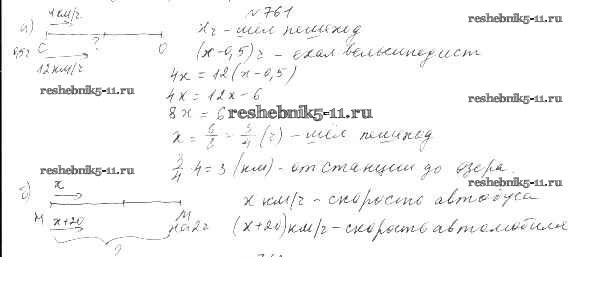 № 761
reshebnik5-11.ru
а) 4 км/ч
x ч – шёл пешеход
С ? О
0,5ч
(x-0,5) ч – ехал велосипедист
12 км/ч
4x = 12(x-0,5)
reshebnik5-11.ru
4x = 12x - 6
reshebnik5-11.ru
8x = 6
reshebnik5-11.ru
x = 6/8 = 3/4 (ч) – шёл пешеход
reshebnik5-11.ru
3/4 · 4 = 3 (км) – от станции до озера.
reshebnik5-11.ru
б) x
x км/ч – скорость автобуса
М x+20 М на 2ч (x+20) км/ч – скорость автомобиля
?